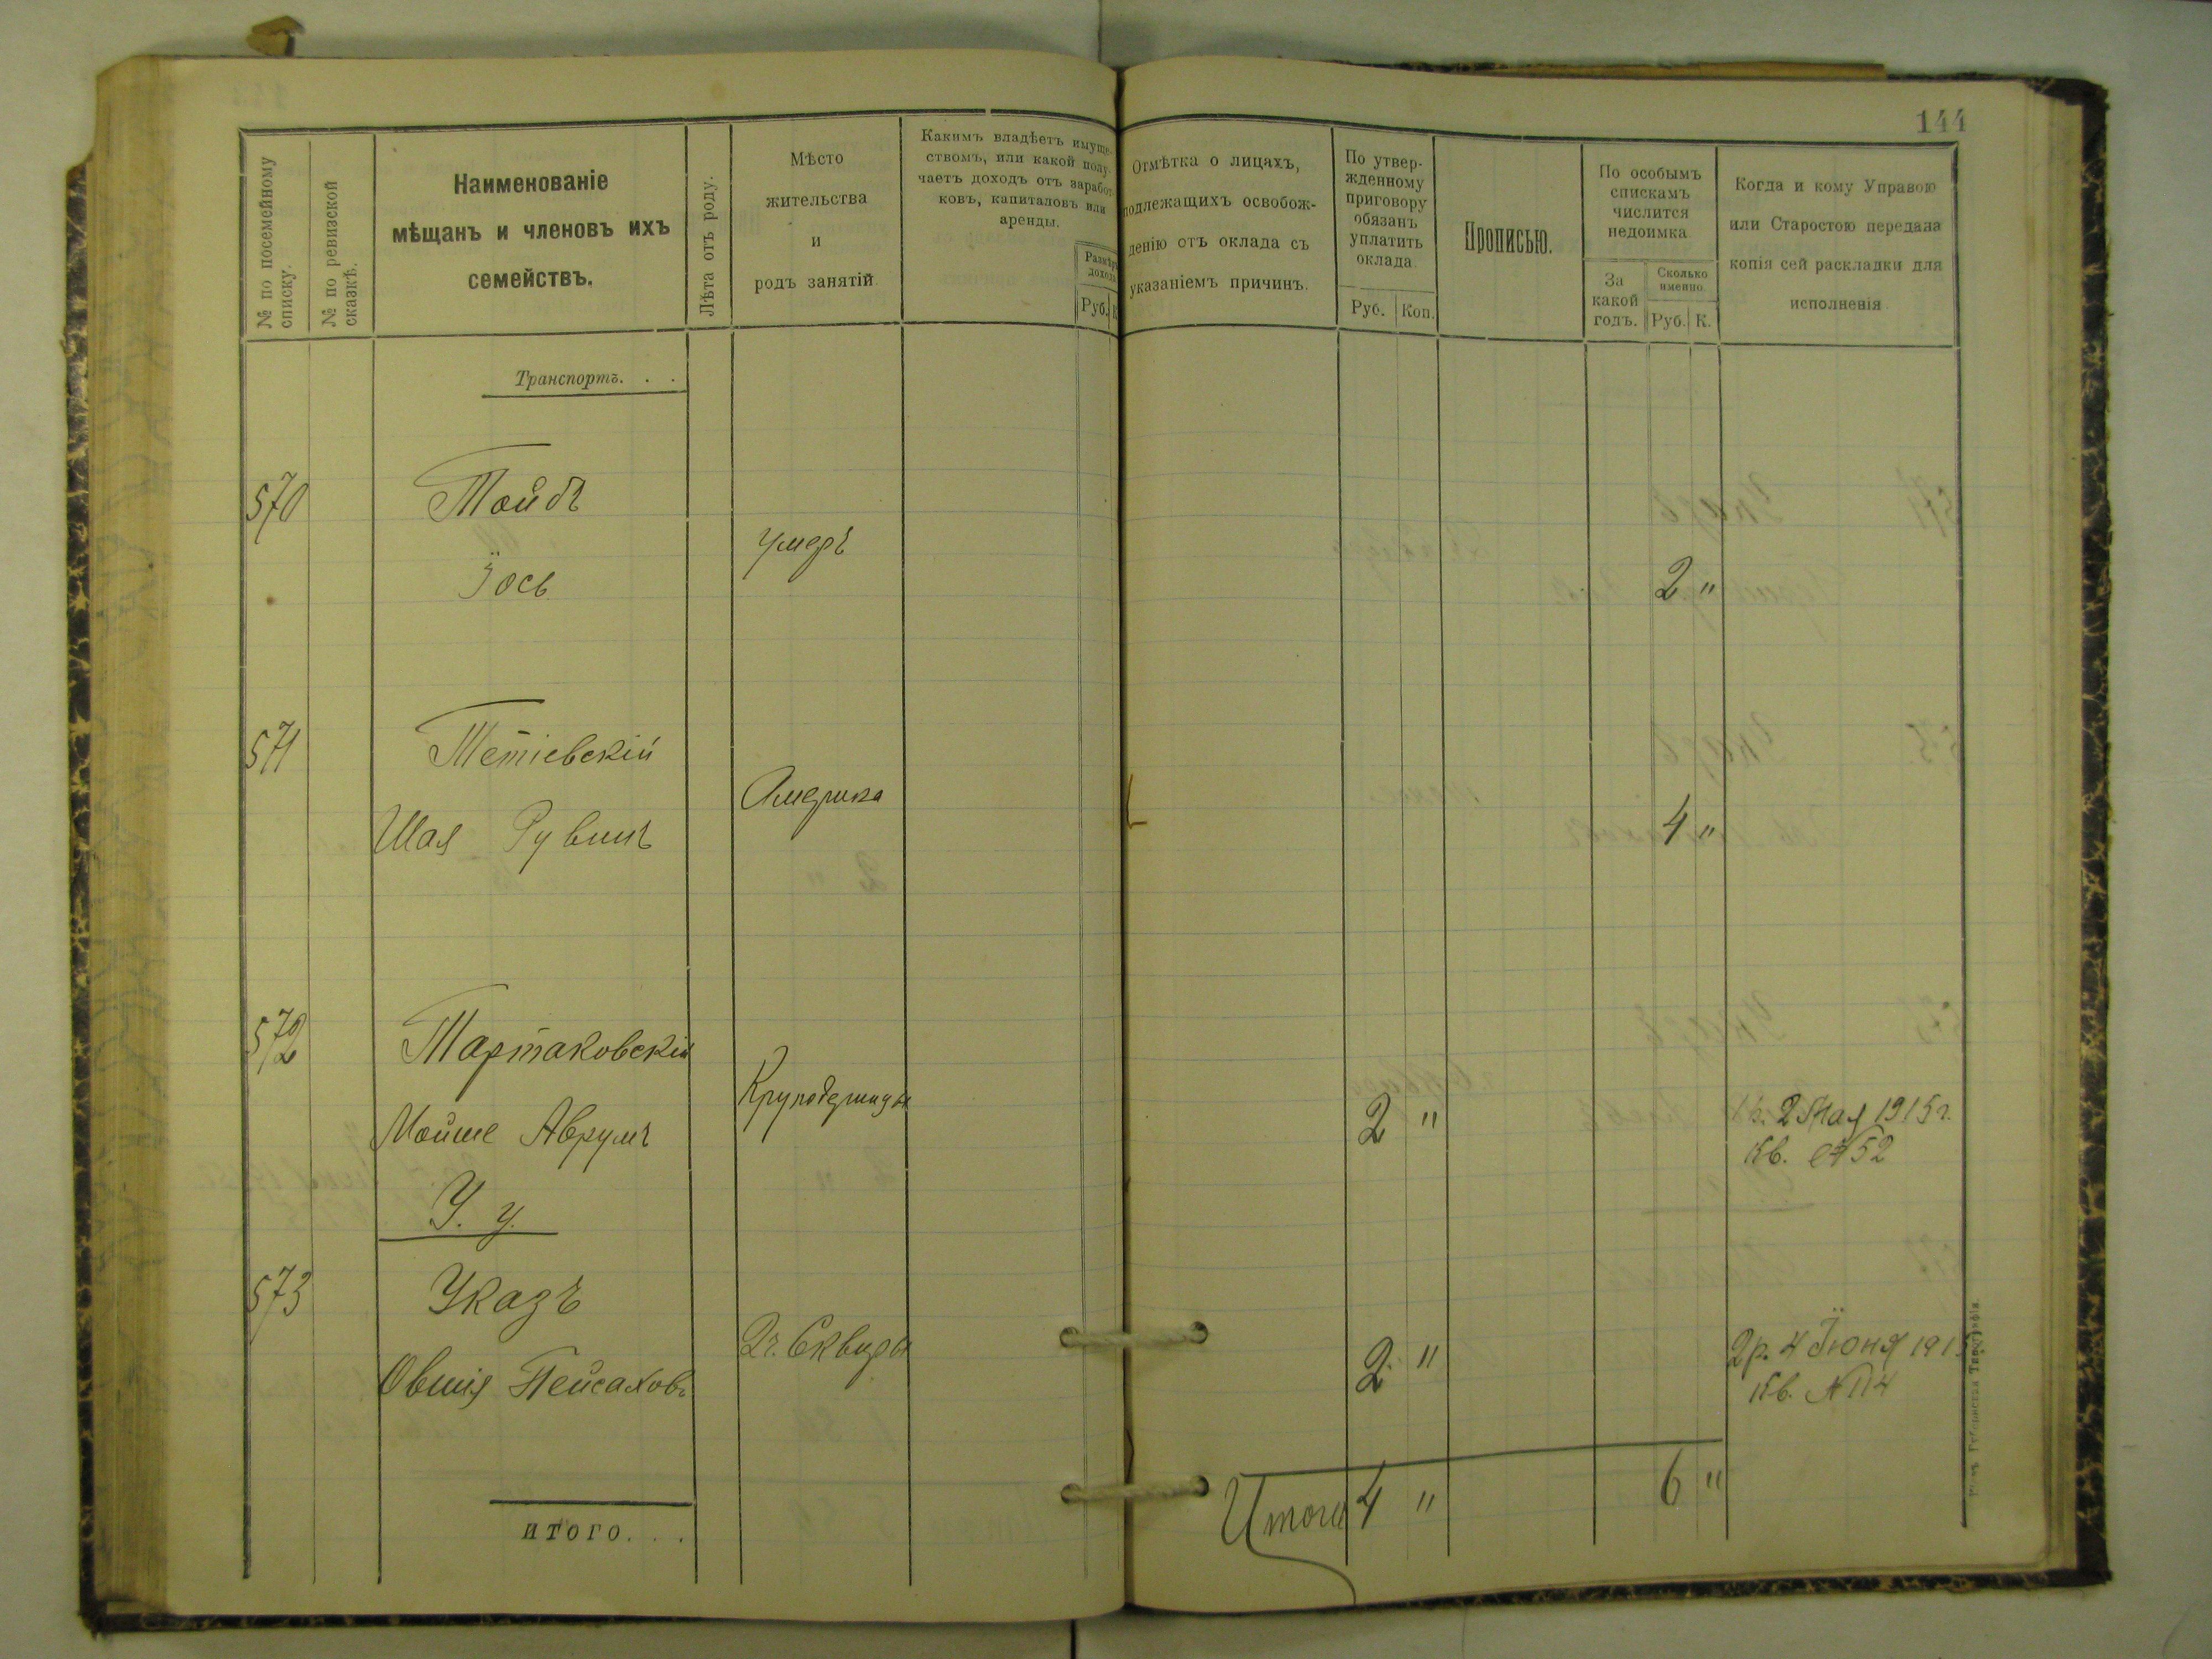 144
№ по посемейному списку.
№ по ревизской сказкѣ.
Наименованіе
мѣщанъ и членовъ ихъ
семействъ.
Лѣта отъ роду.
Мѣсто
жительства
и
родъ занятій
Какимъ владѣетъ имуще-
ствомъ, или какой полу-
чаетъ доходъ отъ заработ-
ковъ, капиталовъ или
аренды.
Размѣръ
дохода
Руб. К.
Отмѣтка о лицахъ,
подлежащихъ освобож-
денію отъ оклада съ
указаніемъ причинъ.
По утвер-
жденному
приговору
обязанъ
уплатить
оклада
Руб. Коп.
Прописью.
По особымъ
спискамъ
числится
недоимка
За
какой
годъ.
Сколько
именно.
Руб. К.
Когда и кому Управою
или Старостою передана
копія сей раскладки для
исполненія
Транспортъ. . .
570 Тойбъ
умеръ
Іось 2 "
571 Тетіевскій
Америка
Шая Рувинъ 4 "
572 Тартаковскій
Круподеринцы
Мойше Аврумъ 2 " 2 Мая 1915 г.
Кв. № 52
У. у.
573 Указъ
г. Сквиры
Овшія Пейсаховъ 2 " 2 р. 4 Іюня 191
Кв. № 114
Итого 4 " 6 "
итого. . .